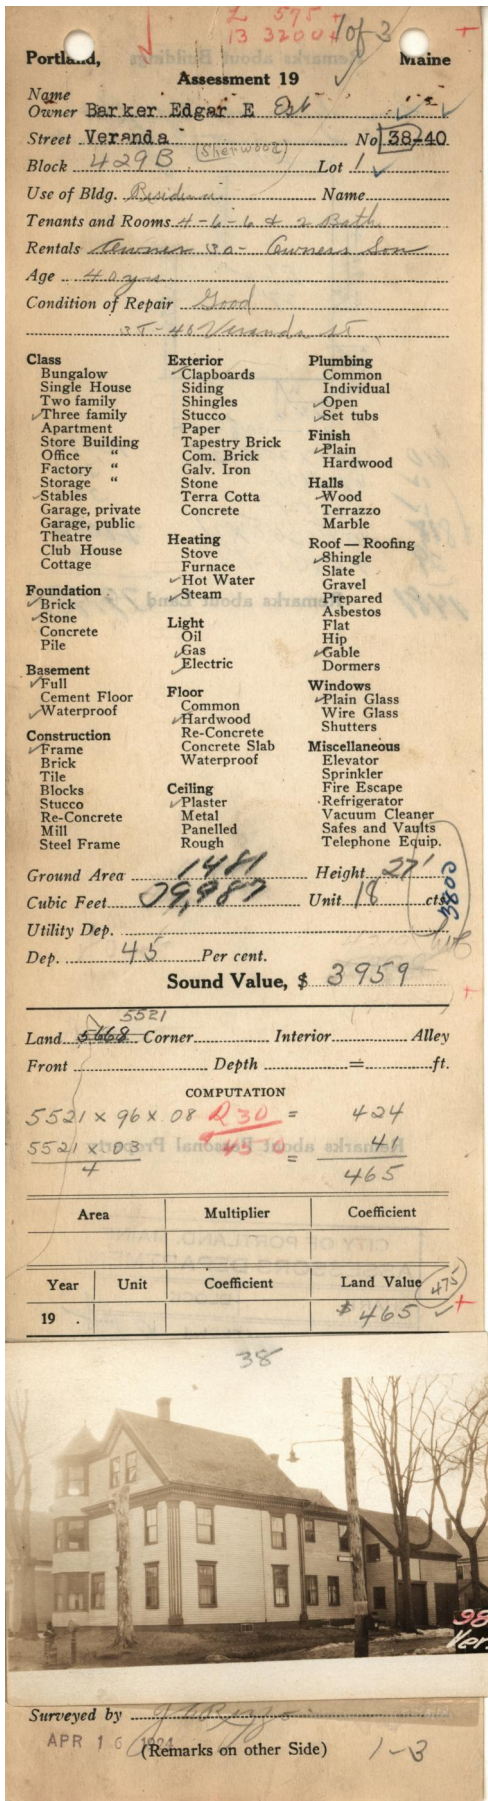 L 575 +
13 3200 +
1 of 3
Portland, Maine
Assessment 19
Name
Owner Barker Edgar E Est
Street Veranda No 38-40
(Sherwood)
Block 429B Lot 1
Use of Bldg. Residence Name
Tenants and Rooms 4-6-6 & 2 Bath
Rentals Owner 30- Owners Son
Age 40 yrs
Condition of Repair Good
38-40 Veranda St.
Class
Bungalow
Single House
Two family
Three family
Apartment
Store Building
Office "
Factory "
Storage "
Stables
Garage, private
Garage, public
Theatre
Club House
Cottage
Foundation
Brick
Stone
Concrete
Pile
Basement
Full
Cement Floor
Waterproof
Construction
Frame
Brick
Tile
Blocks
Stucco
Re-Concrete
Mill
Steel Frame
Exterior
Clapboards
Siding
Shingles
Stucco
Paper
Tapestry Brick
Com. Brick
Galv. Iron
Stone
Terra Cotta
Concrete
Heating
Stove
Furnace
Hot Water
Steam
Light
Oil
Gas
Electric
Floor
Common
Hardwood
Re-Concrete
Concrete Slab
Waterproof
Ceiling
Plaster
Metal
Panelled
Rough
Plumbing
Common
Individual
Open
Set tubs
Finish
Plain
Hardwood
Halls
Wood
Terrazzo
Marble
Roof — Roofing
Shingle
Slate
Gravel
Prepared
Asbestos
Flat
Hip
Gable
Dormers
Windows
Plain Glass
Wire Glass
Shutters
Miscellaneous
Elevator
Sprinkler
Fire Escape
Refrigerator
Vacuum Cleaner
Safes and Vaults
Telephone Equip.
Ground Area 1481 Height 27'
Cubic Feet 39,987 Unit 18 cts.
3800
Utility Dep.
Dep. 45 Per cent.
Sound Value, $ 3959
5521
Land 5668 Corner Interior Alley
Front Depth = ft.
COMPUTATION
5521 x 96 x .08 = 424
5521 x 03 = 41
4
465
Area Multiplier Coefficient
Year Unit Coefficient Land Value
475
19 . $ 465
38
98
Ver
Surveyed by
APR 16 1924
(Remarks on other Side)
1-3